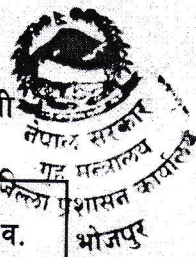 ी
नेपाल सरकार
गृह मन्त्रालय
जिल्ला प्रशासन कार्यालय
व.
भोजपुर